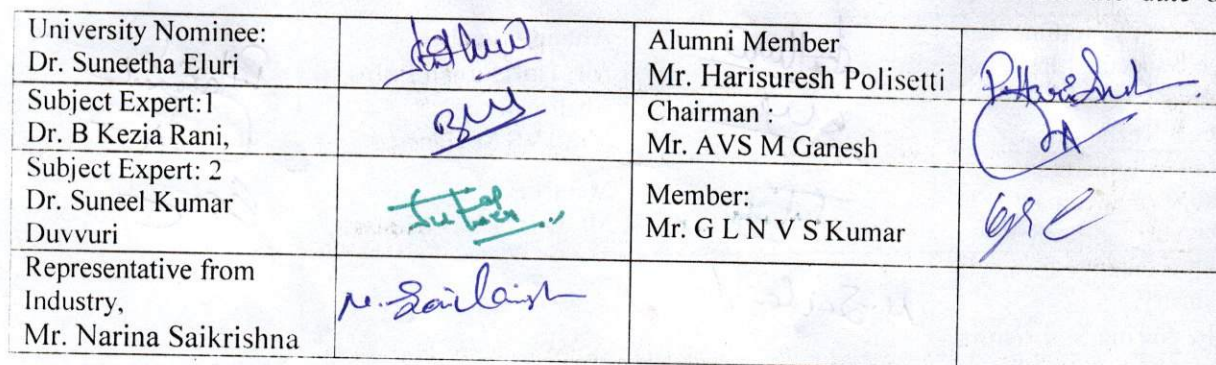 date
University Nominee:
Dr. Suneetha Eluri
Alumni Member
Mr. Harisuresh Polisetti
P. Hari
Subject Expert:1
Dr. B Kezia Rani,
Chairman :
Mr. AVS M Ganesh
Subject Expert: 2
Dr. Suneel Kumar
Duvvuri
Member:
Mr. G L N V S Kumar
Representative from
Industry,
Mr. Narina Saikrishna